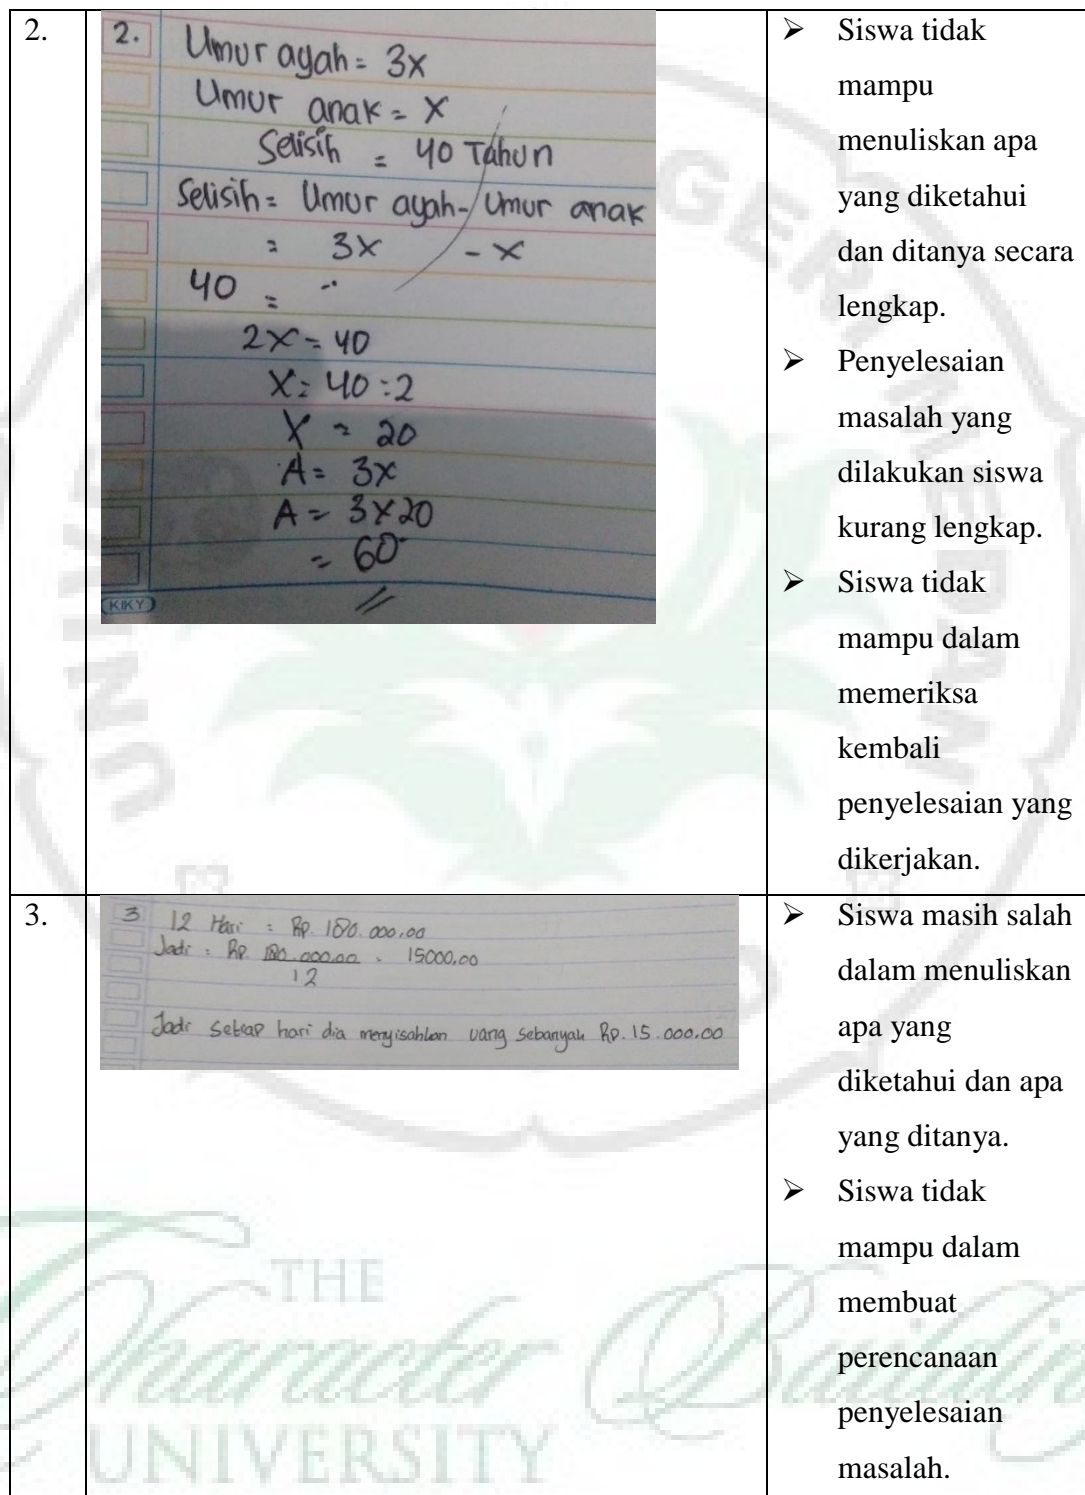 2.
2.
Umur ayah = 3x
Umur anak = x
Selisih = 40 Tahun
Selisih = Umur ayah - Umur anak
= 3x - x
40 =
2x = 40
x = 40 : 2
x = 20
A = 3x
A = 3x20
= 60
KIKY
➢ Siswa tidak
mampu
menuliskan apa
yang diketahui
dan ditanya secara
lengkap.
➢ Penyelesaian
masalah yang
dilakukan siswa
kurang lengkap.
➢ Siswa tidak
mampu dalam
memeriksa
kembali
penyelesaian yang
dikerjakan.
3.
3 12 Hari = Rp. 180.000,00
Jadi = Rp. 180.000,00 = 15000,00
12
Jadi Setiap hari dia menyisahkan uang sebanyak Rp. 15.000,00
➢ Siswa masih salah
dalam menuliskan
apa yang
diketahui dan apa
yang ditanya.
➢ Siswa tidak
mampu dalam
membuat
perencanaan
penyelesaian
masalah.
THE
Character Buildin
UNIVERSITY